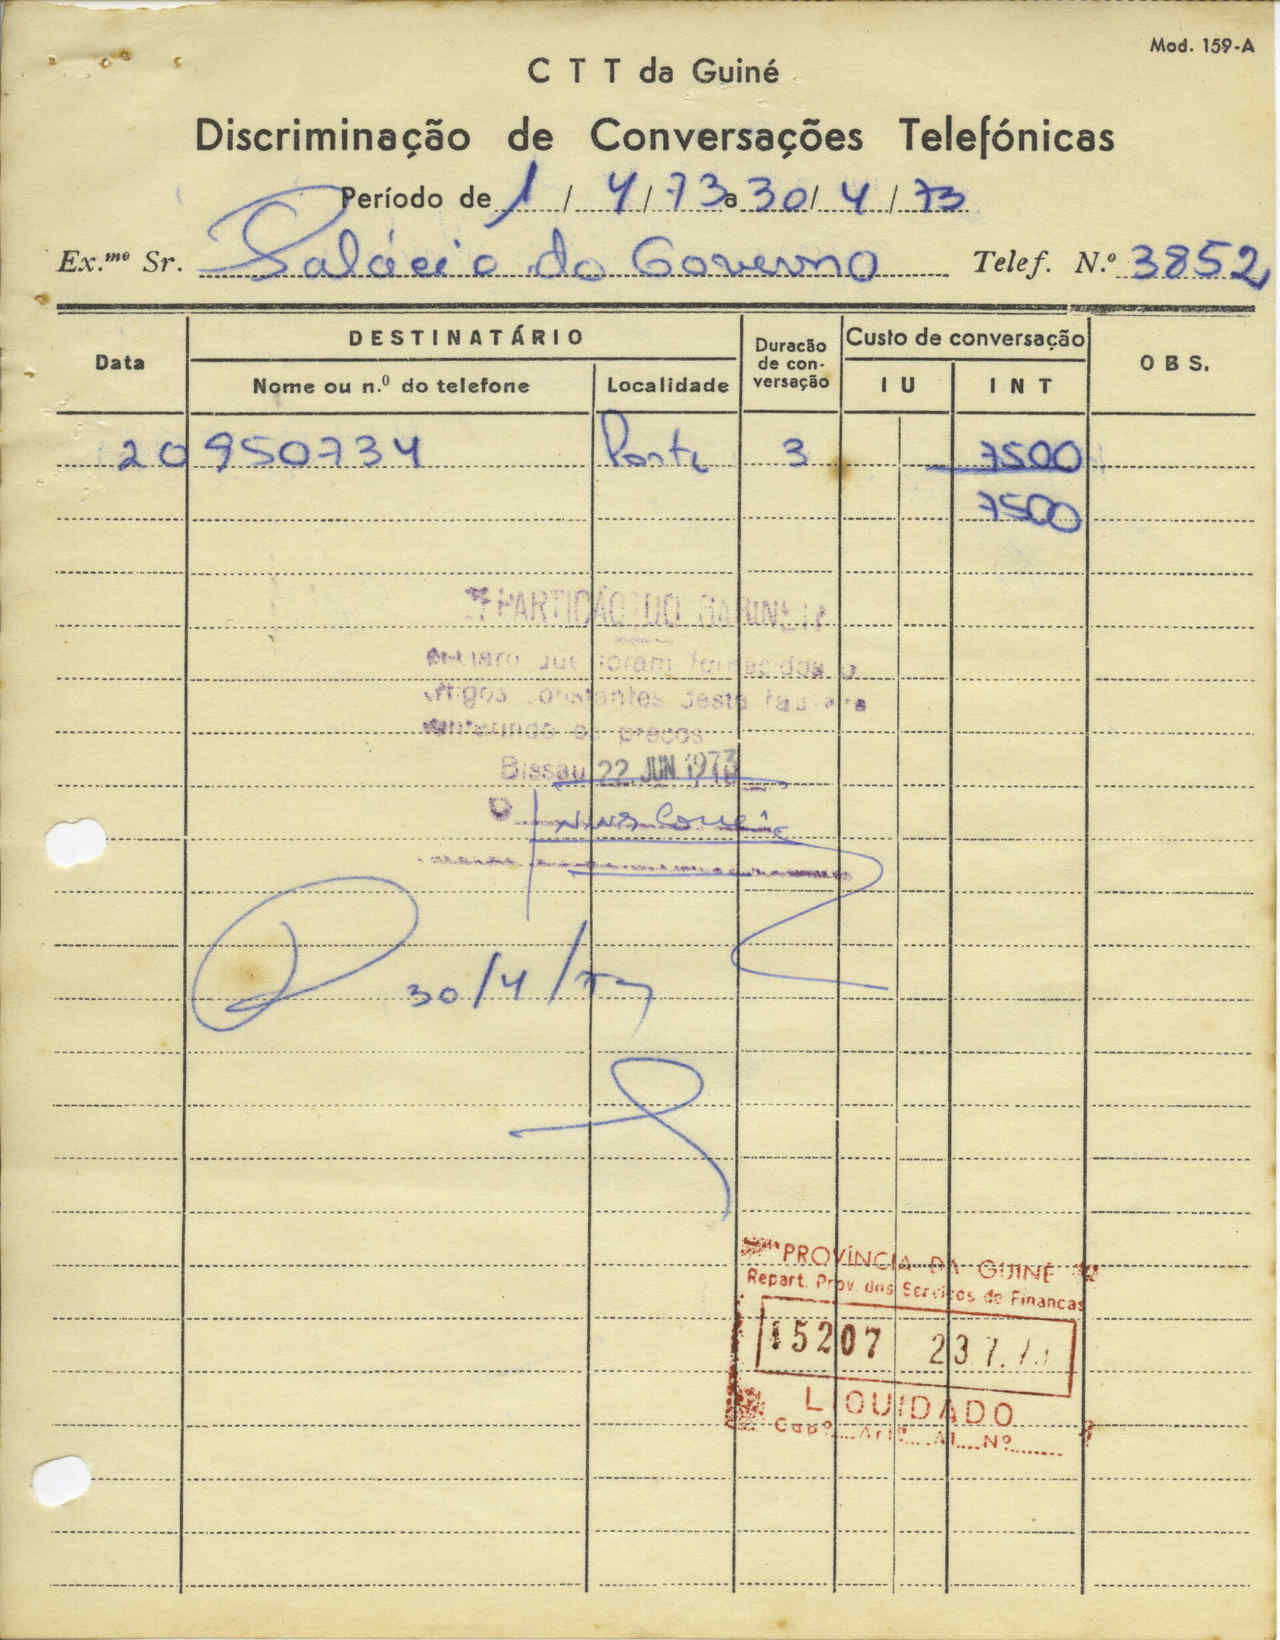 Mod. 159-A
C T T da Guiné
Discriminação de Conversações Telefónicas
Período de 1 / 4 / 73 a 30 / 4 / 73
Ex.mo Sr. Palácio do Governo Telef. N.º 3852
Data
DESTINATÁRIO
Nome ou n.º do telefone
Localidade
Duracão de con-versação
Custo de conversação
I U
I N T
O B S.
20 950734 3 7500
7500
PARTIÇÃO DO GABINETE
foram fornecidos o
artigos constantes desta
os preços
Bissau 22 JUN 1973
O
30/4/73
PROVÍNCIA DA GUINÉ
Repart. Prov. dos Serviços de Finanças
15207 23 7.
LIQUIDADO
Capº Artº Al Nº